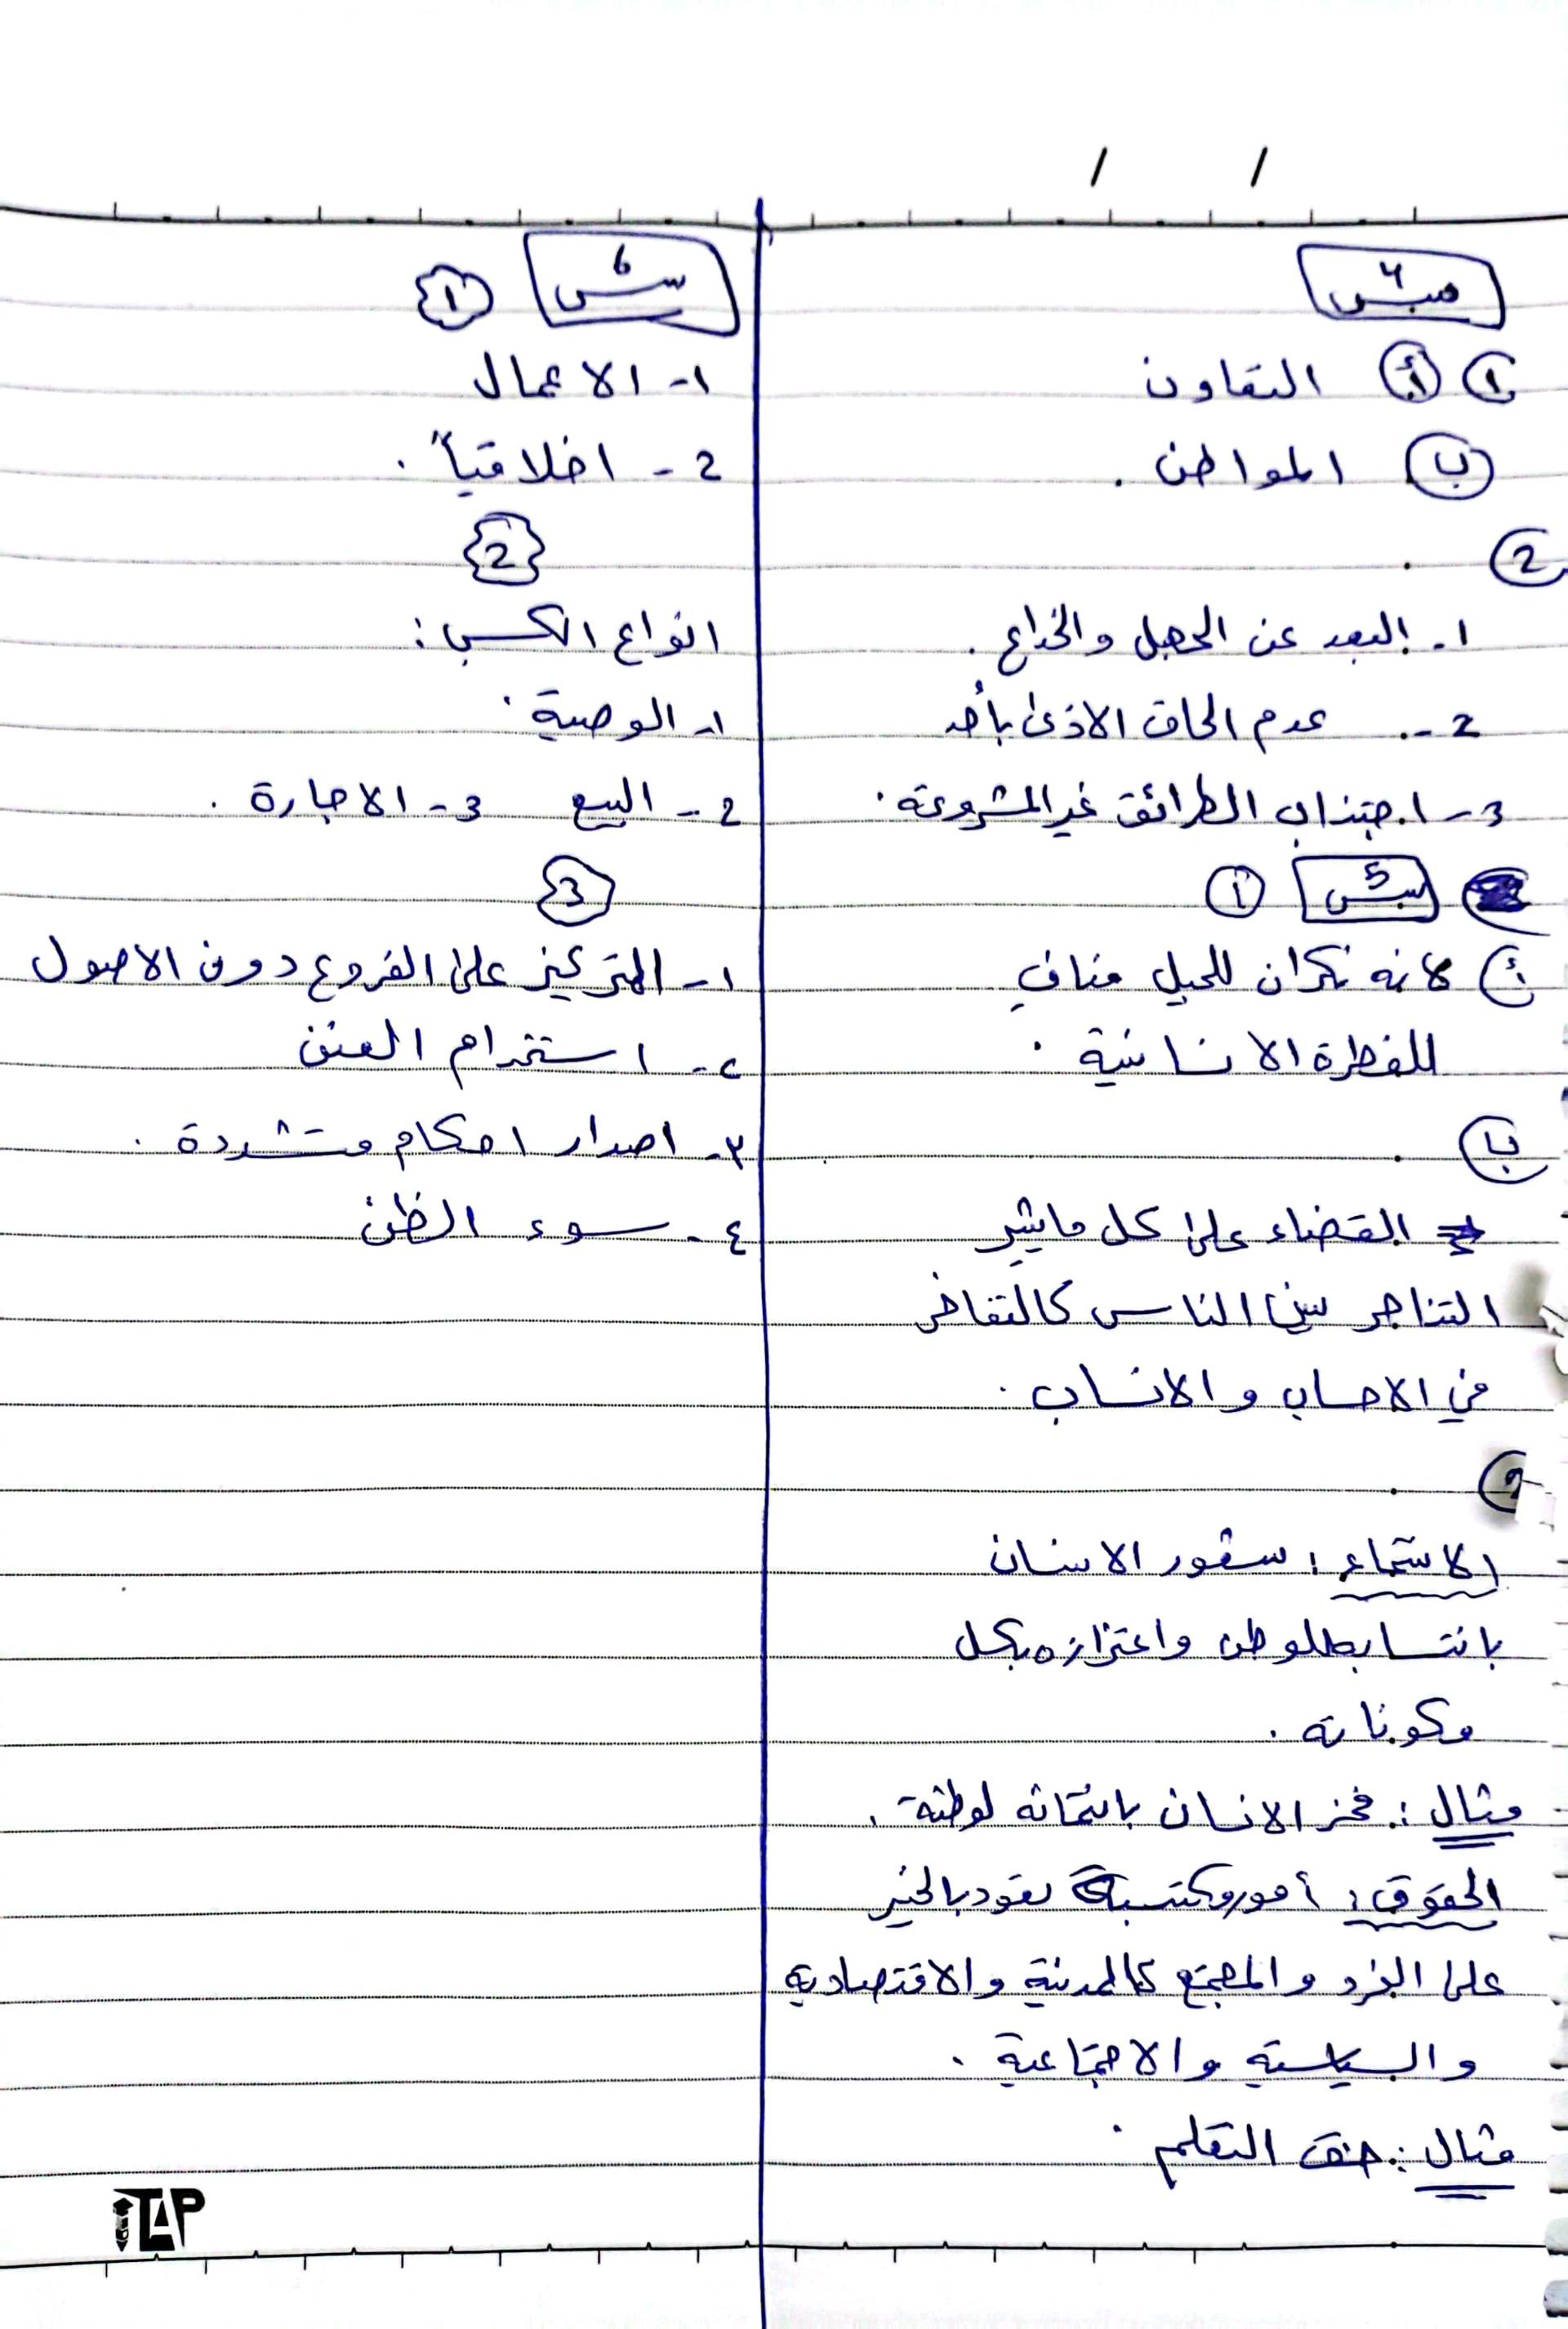 / /
س٤
١ أ التعاون
ب المواطن .
2
١- البعد عن الحيل والخداع .
2- عدم الحاق الاذى بأحد
3- اجتناب الطرائق غير المشروعة .
س5 ١
أ لانه نكران للجميل منافي
للفطرة الانسانية .
ب
القضاء على كل ما يثير
التناحر بين الناس كالتفاخر
في الاحساب والانساب .
2
الانتماء : شعور الانسان
بانتسابه للوطن واعتزازه بكل
مكوناته .
مثال : فخر الانسان بانتمائه لوطنه .
الحقوق : أمور مكتسبة تعود بالخير
على الفرد والمجتمع كالمدنية والاقتصادية
والسياسية والاجتماعية .
مثال : حق التعلم .
س6 1
١- الاعمال
2- اخلاقياً .
2
انواع الكسب :
١- الوصية .
2- البيع 3- الاجارة .
3
١- التركيز على الفروع دون الاصول
٢- استخدام العنف
٣- اصدار احكام متشددة .
٤- سوء الظن
iTAP